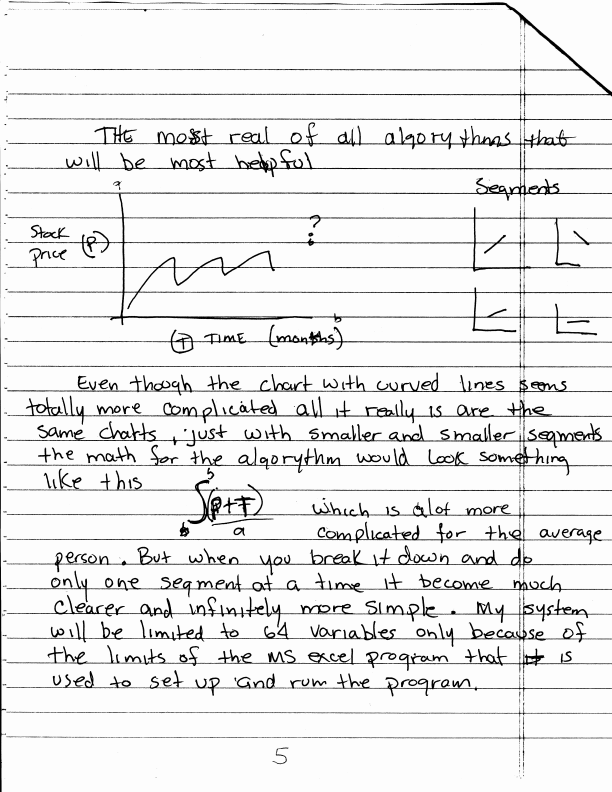 THE most real of all algorythms that
will be most helpful
Segments
a
Stock
Price (P)
?
b
(T) TIME (months)
Even though the chart with curved lines seems
totally more complicated all it really is are the
same charts, just with smaller and smaller segments
the math for the algorythm would look something
like this
b
∫(P+T)
a
which is alot more
complicated for the average
person. But when you break it down and do
only one segment at a time it become much
clearer and infinitely more simple. My system
will be limited to 64 variables only because of
the limits of the MS excel program that is
used to set up and run the program.
5